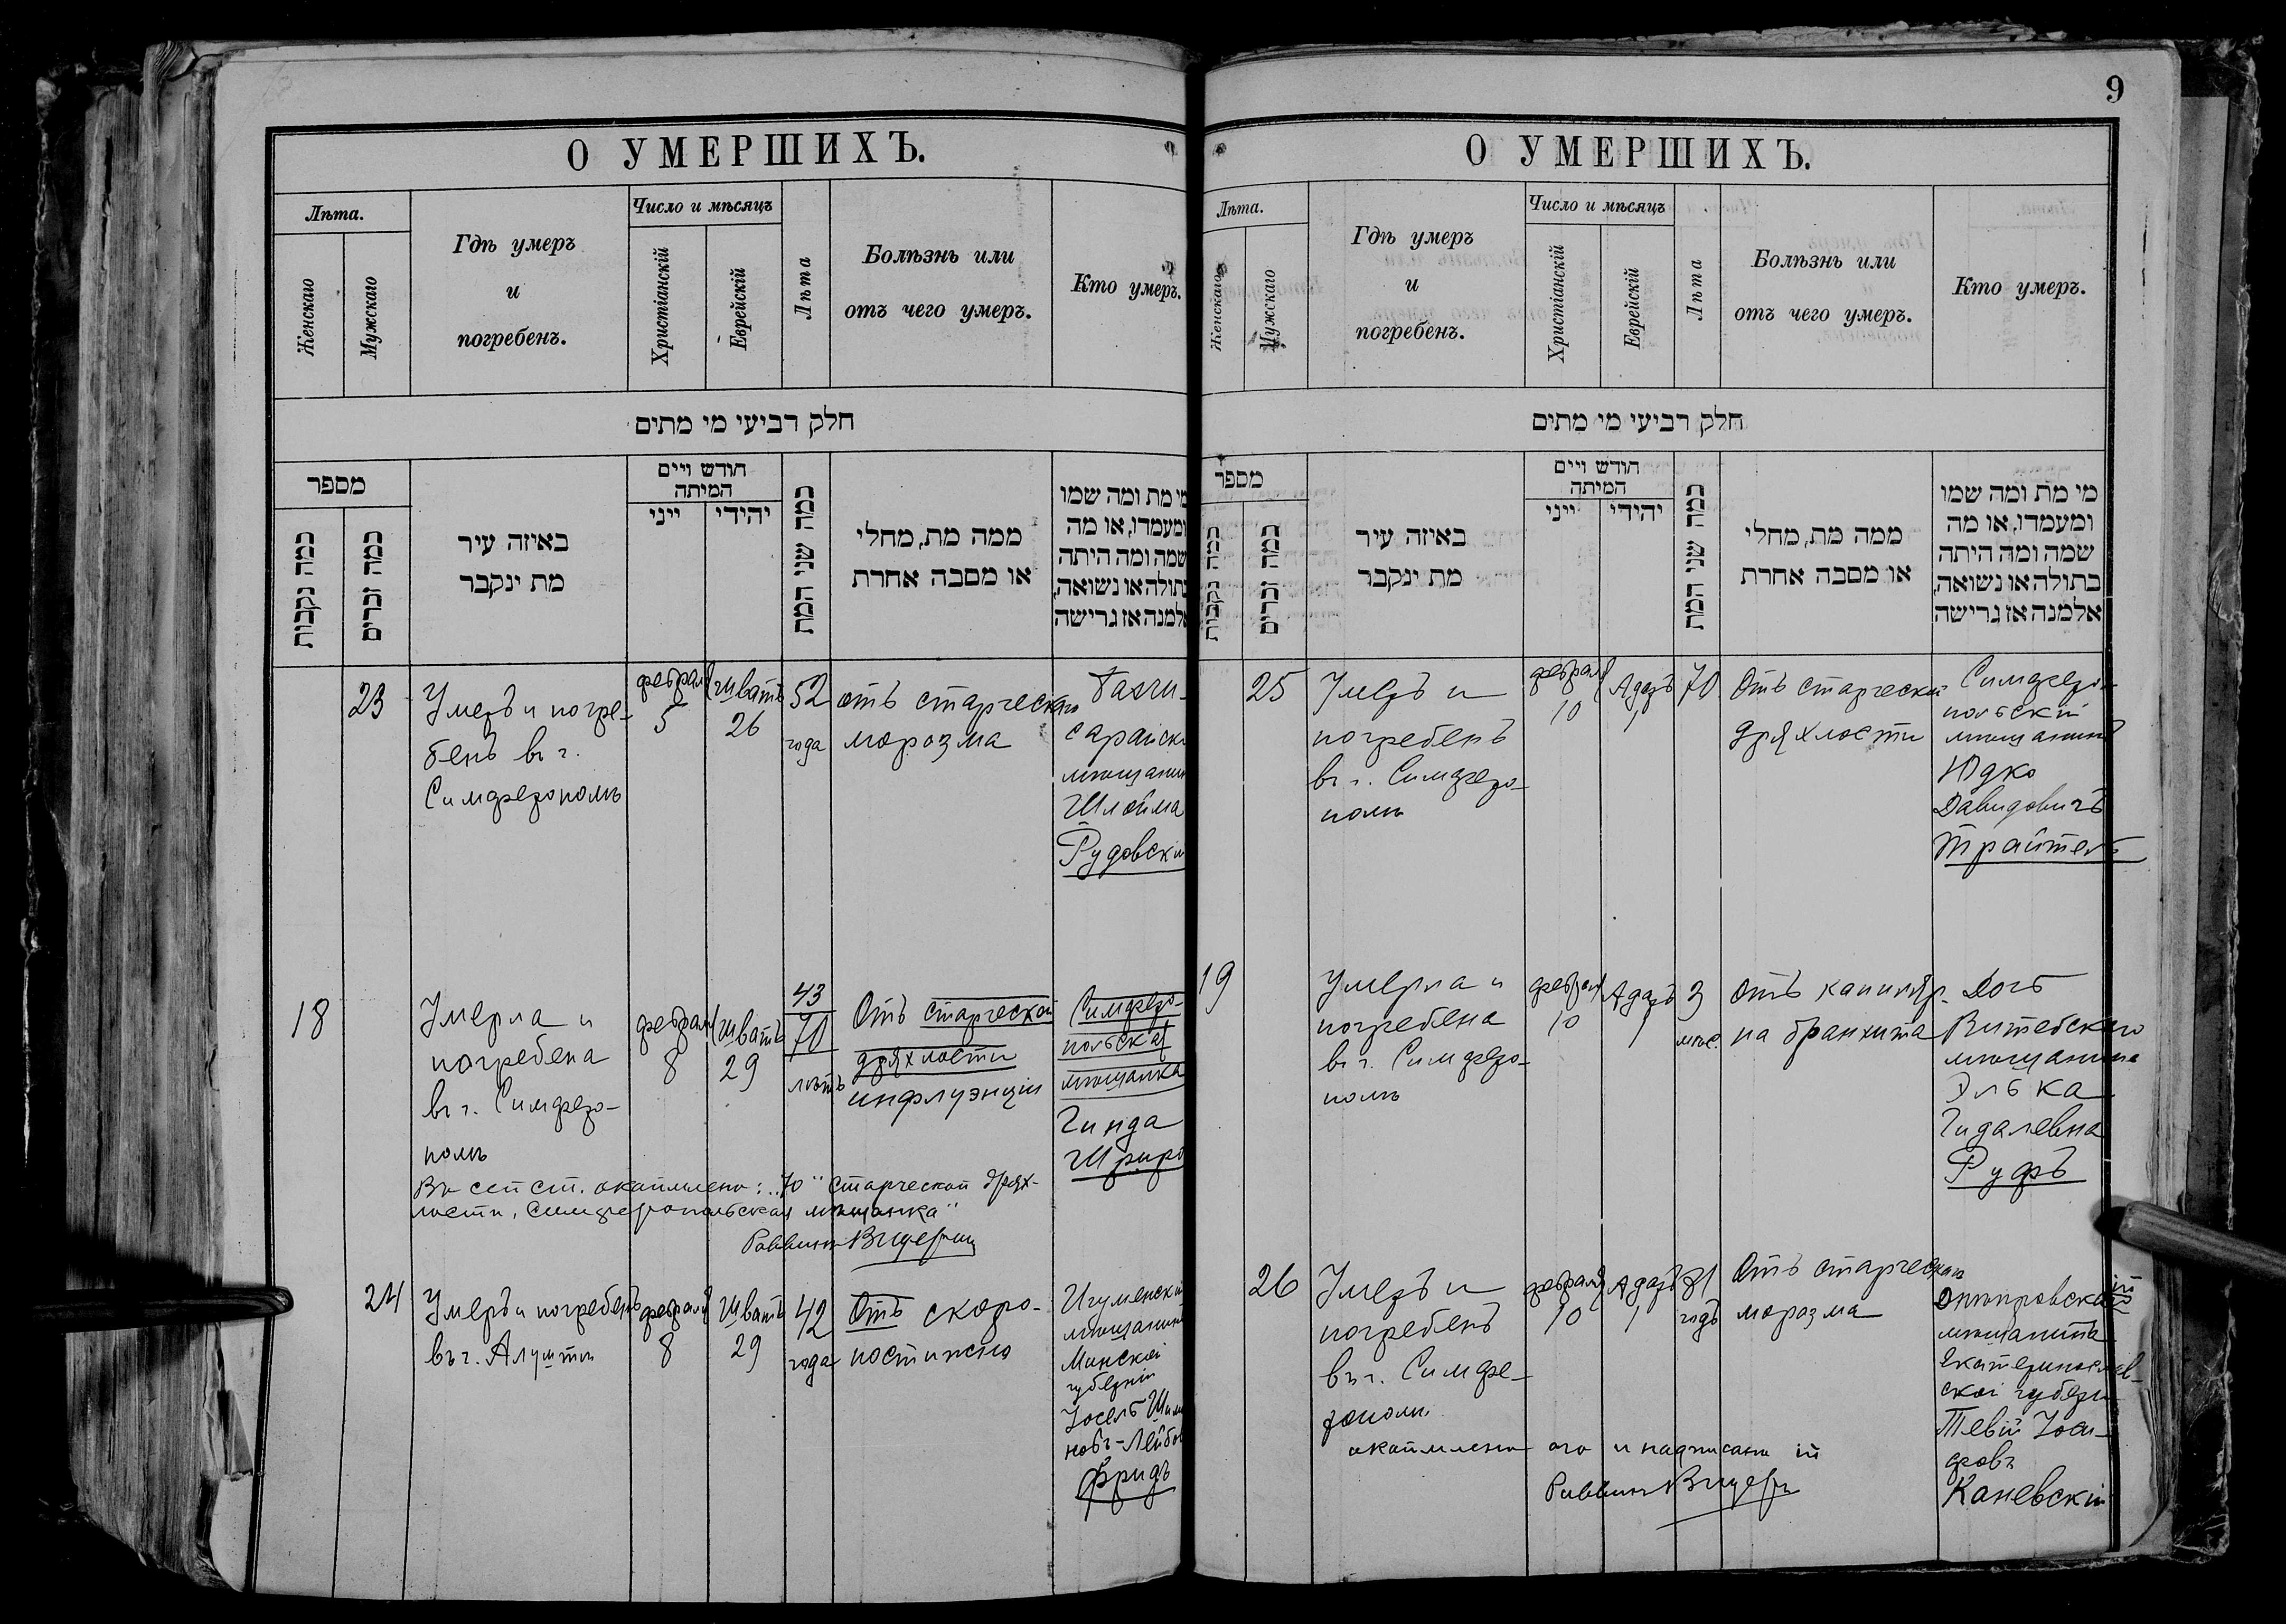 9
О УМЕРШИХЪ.
Лѣта.
Женскаго
Мужскаго
Гдѣ умеръ
и
погребенъ.
Число и мѣсяцъ
Христіанскій
Еврейскій
Лѣта
Болѣзнь или
отъ чего умеръ.
Кто умеръ.
חלק רביעי מי מתים
מספר
כמה נקבות
כמה זכרים
באיזה עיר
מת ינקבר
חודש ויים
המיתה
ייני
יהידי
כמה שני המת
ממה מת, מחלי
או מסבה אחרת
מי מת ומה שמו
ומעמדו, או מה
שמה ומה היתה
בתולה או נשואה,
אלמנה אז גרישה
23
Умеръ и погре-
бенъ въ г.
Симферополѣ
февраля
5
Шватъ
26
52
года
отъ старческаго
морозма
Бахчи-
сарайск
мѣщанин
Шлойма
Рудовскі
18
Умерла и
погребена
въ г. Симферо-
полѣ
февраля
8
Шватъ
29
43
70
лѣтъ
Отъ старческой
дряхлости
инфлуэнціи
Симферо-
польская
мѣщанка
Гинда
Въ сей ст. окаймлено: „70" старческой дрях-
лости, Симферопольская мѣщанка"
Раввинъ
24
Умеръ и погребенъ
въ г. Алуштѣ
февраля
8
Шватъ
29
42
года
Отъ скоро-
постижно
Игуменскі
мѣщанинъ
Минской
губерніи
Іосель
новъ-Лейбов
Фридъ
О УМЕРШИХЪ.
Лѣта.
Женскаго
Мужскаго
Гдѣ умеръ
и
погребенъ.
Число и мѣсяцъ
Христіанскій
Еврейскій
Лѣта
Болѣзнь или
отъ чего умеръ.
Кто умеръ.
חלק רביעי מי מתים
מספר
כמה נקבות
כמה זכרים
באיזה עיר
מת ינקבר
חודש ויים
המיתה
ייני
יהידי
כמה שני המת
ממה מת, מחלי
או מסבה אחרת
מי מת ומה שמו
ומעמדו, או מה
שמה ומה היתה
בתולה או נשואה,
אלמנה אז גרישה
25
Умеръ и
погребенъ
въ г. Симферо-
полѣ
февраля
10
Адаръ
1
70
Отъ старческой
дряхлости
Симферо-
польскій
мѣщанинъ
Юдко
Давидовичъ
Трайтель
19
Умерла и
погребена
въ г. Симферо-
полѣ
февраля
10
Адаръ
1
3
мѣс.
отъ капиляр-
на бранхита
Дочь
Витебскаго
мѣщанина
Элька
Гидалевна
Руфъ
26
Умеръ и
погребенъ
въ г. Симфе-
рополѣ
февраля
10
Адаръ
1
71
годъ
Отъ старческаго
морозма
Днѣпровскаго
ій
мѣщанинъ
екатеринослав-
ской губерн
Тевій Іоси-
фовъ
Каневскій
окаймлено аго и надписано ій
Раввинъ